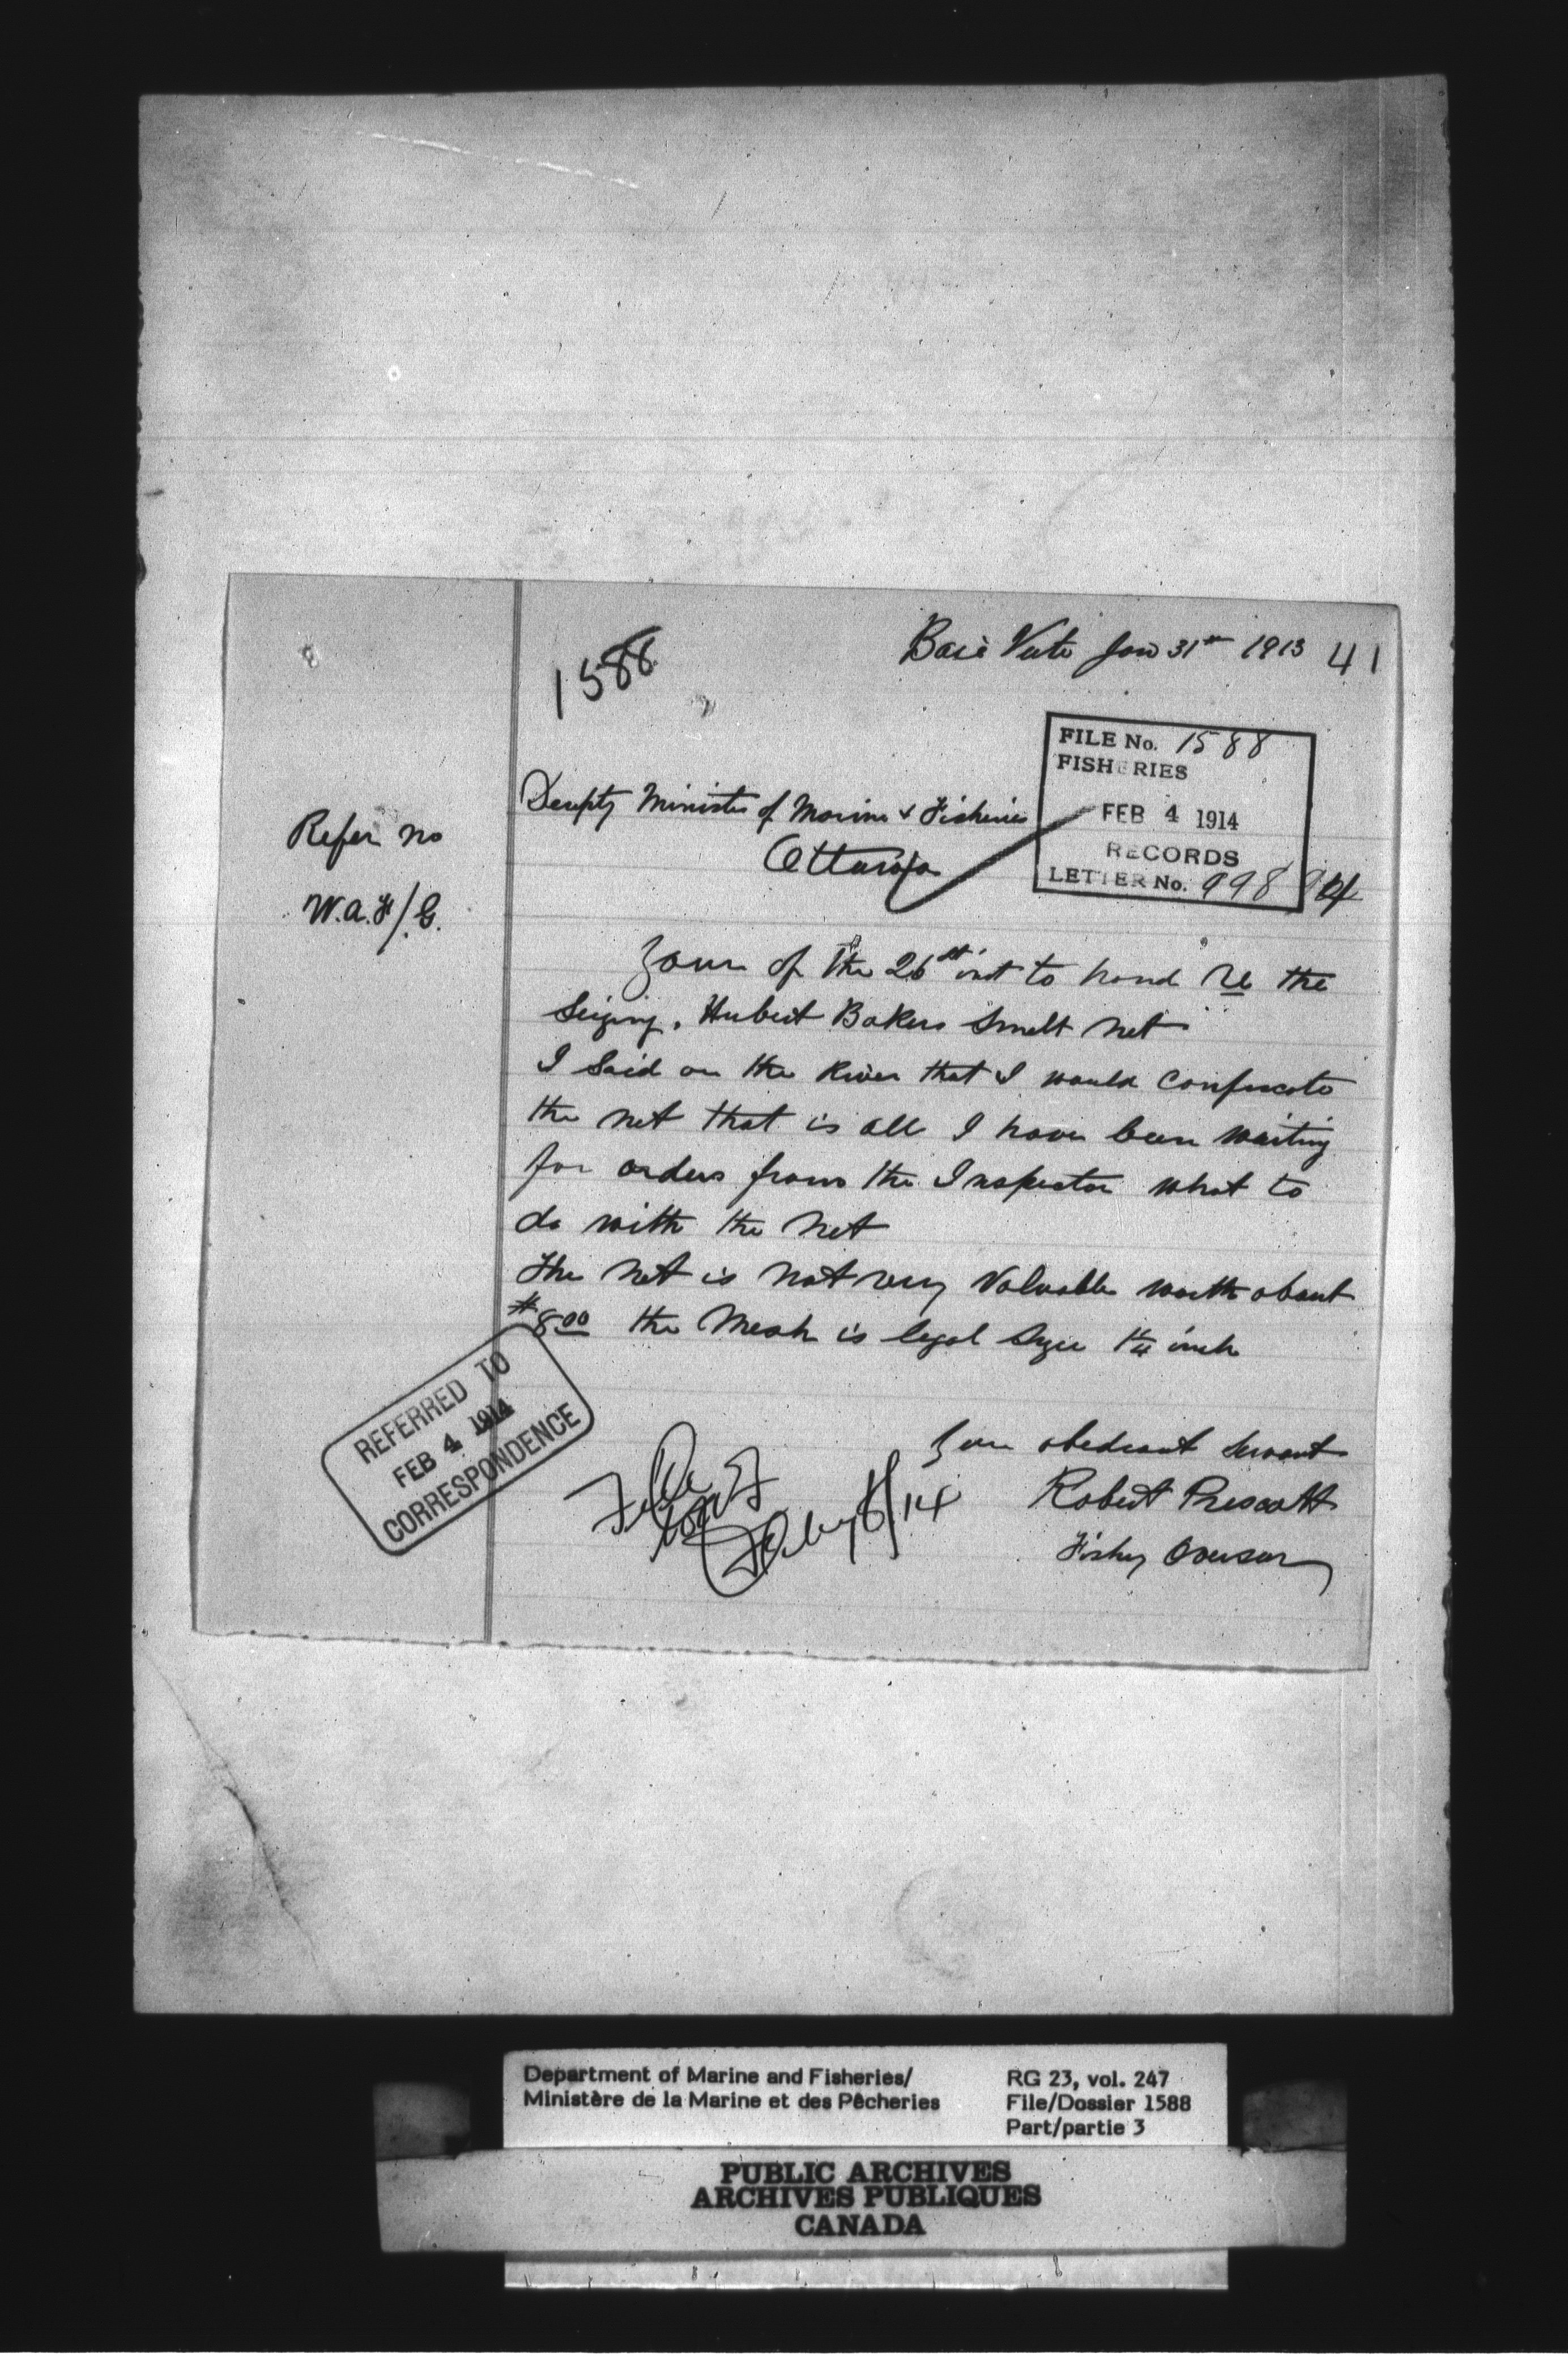 1588
Baie Verte Jan 31st 1913 41
FILE No. 1588
FISHERIES
FEB 4 1914
RECORDS
LETTER No. 998
Deupty Minister of Marine & Fisheries
Ottawa
Refer no
W.a.F/G.
Your of the 26st inst to hand re the
Seizing, Hubert Bakers Smelt net
I Said on the River that I would Confuscate
the net that is all I have been waiting
for orders from the Inspector what to
do with the net
The net is not very Valuable worth about
$8.00 the Mesh is legal Size 1¼ inch
REFERRED TO
FEB 4 1914
CORRESPONDENCE
Your obedient Servant
Robert Prescott
Fishy Overseer
File
8/14
Department of Marine and Fisheries/
Ministère de la Marine et des Pêcheries
RG 23, vol. 247
File/Dossier 1588
Part/partie 3
PUBLIC ARCHIVES
ARCHIVES PUBLIQUES
CANADA